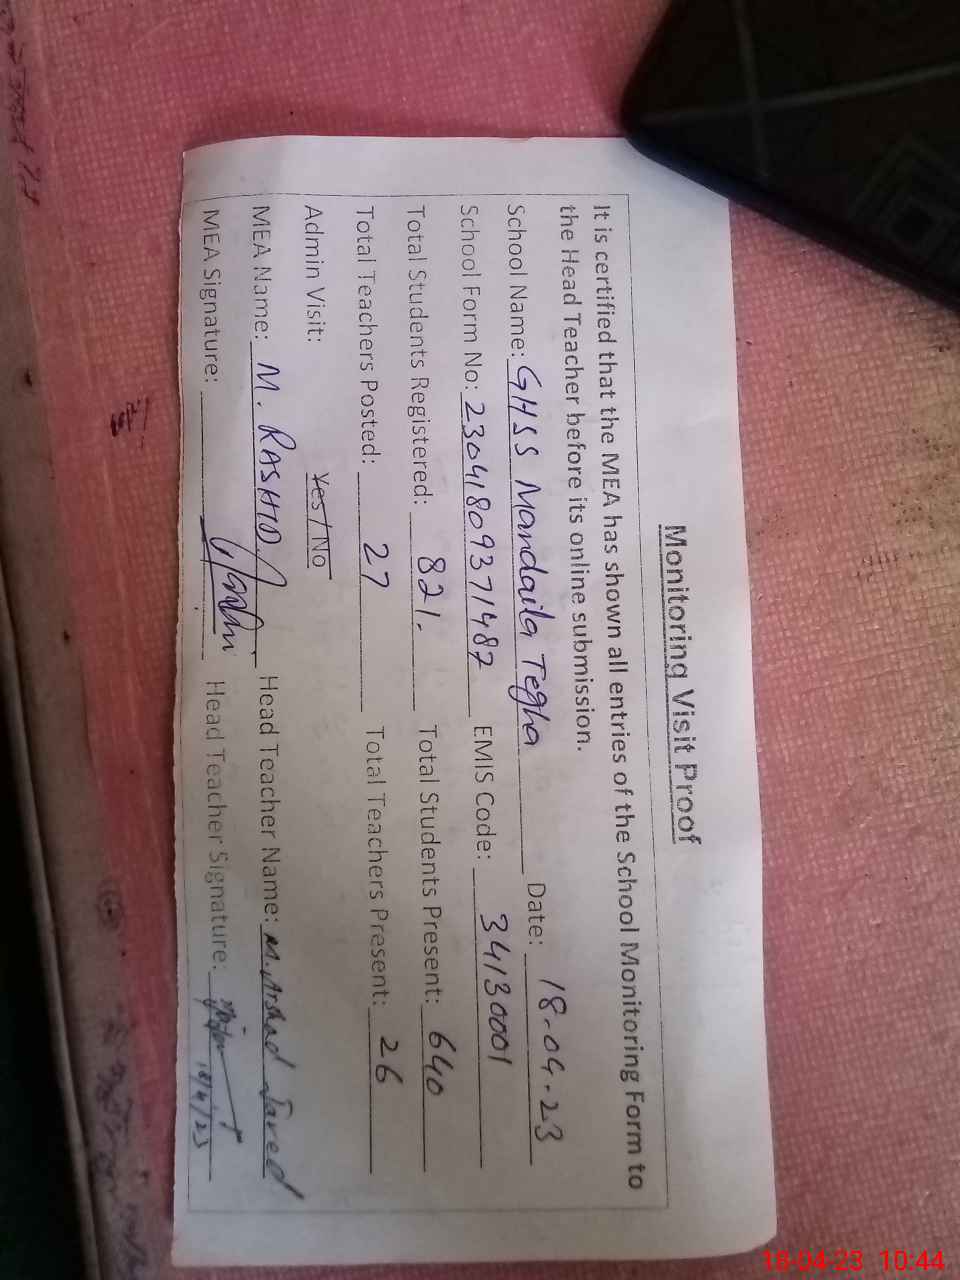 Monitoring Visit Proof
It is certified that the MEA has shown all entries of the School Monitoring Form to
the Head Teacher before its online submission.
School Name: GHSS Mandaila Tegha Date: 18-04-23
School Form No: 23041809371487 EMIS Code: 34130001
Total Students Registered: 821. Total Students Present: 640
Total Teachers Posted: 27 Total Teachers Present: 26
Admin Visit: Yes/No
MEA Name: M. RASHID Head Teacher Name: M. Arshad Javed
MEA Signature: Head Teacher Signature: 18/4/23
18-04-23 10:44